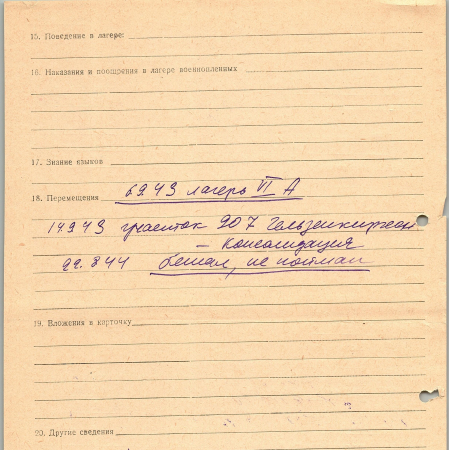 15. Поведение в лагере:
16. Наказания и поощрения в лагере военнопленных
17. Знание языков
18. Перемещения 6943 лагерь VI А
14943 участок 207 Гельзенкирхен
– Консолидация
22.844 бежал, не пойман
19. Вложения в карточку
20. Другие сведения